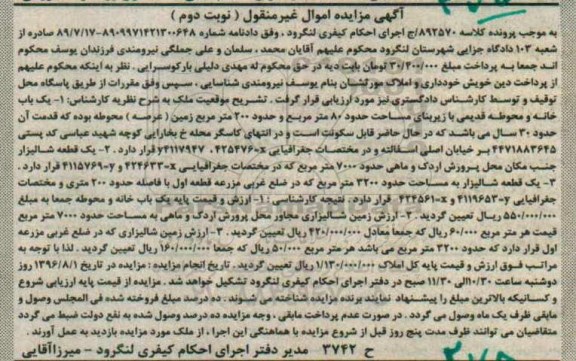 آگهی مزایده اموال غیرمنقول ( نوبت دوم )
به موجب پرونده کلاسه ۸۹۲۵۷۰/ج اجرای احکام کیفری لنگرود ، وفق دادنامه شماره ۸۹۰۹۹۷۱۴۲۱۳۰۰۶۴۸-۸۹/۷/۱۷ صادره از
شعبه ۱۰۳ دادگاه جزایی شهرستان لنگرود محکوم علیهم آقایان محمد ، سلمان و علی جملگی نیرومندی فرزندان یوسف محکوم
اند جمعا به پرداخت ۳۰/۴۰۰/۰۰۰ تومان بابت دیه در حق محکوم له مهدی دلیلی بارکوسرایی . نظر به اینکه محکوم علیهم
از پرداخت دین خویش خودداری و املاک مورثشان بنام یوسف نیرومندی شناسایی ، سپس وفق مقررات از طریق پاسگاه محل
توقیف و توسط کارشناس دادگستری نیز مورد ارزیابی قرار گرفت . تشریح موقعیت ملک به شرح نظریه کارشناس: ۱- یک باب
خانه و محوطه قدیمی با زیربنای مساحت حدود ۸۰ متر مربع و حدود ۲۰۰ متر مربع زمین ( عرصه ) محوطه بوده که قدمت آن
حدود ۳۰ سال می باشد که در حال حاضر قابل سکونت است و در انتهای کاسگر محله خ بخارایی کوچه شهید عباسی کد پستی
۴۴۷۱۸۸۳۶۴۵ بر خیابان اصلی اسفالته و در مختصات جغرافیایی ۴۲۵۴۷۶۰-x و ۴۱۱۷۹۴۷-y قرار دارد . ۲- یک قطعه شالیزار
جنب مکان محل پرورش اردک و ماهی حدود ۷۰۰۰ متر مربع که در مختصات جغرافیایی ۴۲۴۶۳۳-x و ۴۱۱۵۷۶۹-y قرار دارد .
۳- یک قطعه شالیزار به مساحت حدود ۳۲۰۰ متر مربع که در ضلع غربی مزرعه قطعه اول با فاصله حدود ۲۰۰ متری و مختصات
جغرافیایی ۴۱۱۹۶۵۳-y و ۴۲۴۵۶۱-x قرار دارد . نتیجه کارشناسی : ۱- ارزش و قیمت پایه یک باب خانه و محوطه جمعا به مبلغ
۵۵۰/۰۰۰/۰۰۰ ریال تعیین گردید . ۲- ارزش زمین شالیزاری مجاور محل پرورش اردک و ماهی به مساحت حدود ۷۰۰۰ متر مربع
قیمت هر متر مربع ۶۰/۰۰۰ ریال که جمعا معادل ۴۲۰/۰۰۰/۰۰۰ ریال تعیین گردید . ۳- ارزش زمین شالیزاری که در ضلع غربی مزرعه
اول قرار دارد که حدود ۳۲۰۰ متر مربع می باشد هر متر مربع ۵۰/۰۰۰ ریال که جمعا ۱۶۰/۰۰۰/۰۰۰ ریال تعیین گردید . لذا با توجه به
مراتب فوق ارزش و قیمت پایه کل املاک ۱/۱۳۰/۰۰۰/۰۰۰ ریال تعیین گردید . تاریخ انجام مزایده : مزایده در تاریخ ۱۳۹۶/۸/۱ روز
دوشنبه ساعت ۱۰/۳۰ الی ۱۱/۳۰ صبح در دفتر اجرای احکام کیفری لنگرود تشکیل خواهد شد . مزایده از قیمت پایه ارزیابی شروع
و کسانیکه بالاترین مبلغ را پیشنهاد نمایند برنده مزایده شناخته می شوند . ده درصد مبلغ فروخته شده فی المجلس وصول و
مابقی ظرف یک ماه وصول می گردد . در صورت عدم پرداخت مابقی ، وجه مزایده ده درصد وصول شده به نفع دولت ضبط می گردد
متقاضیان می توانند ظرف مدت پنج روز قبل از شروع مزایده با هماهنگی این اجرا ، از ملک مورد مزایده بازدید به عمل آورند .
ح ۳۷۴۲ مدیر دفتر اجرای احکام کیفری لنگرود - میرزاآقایی